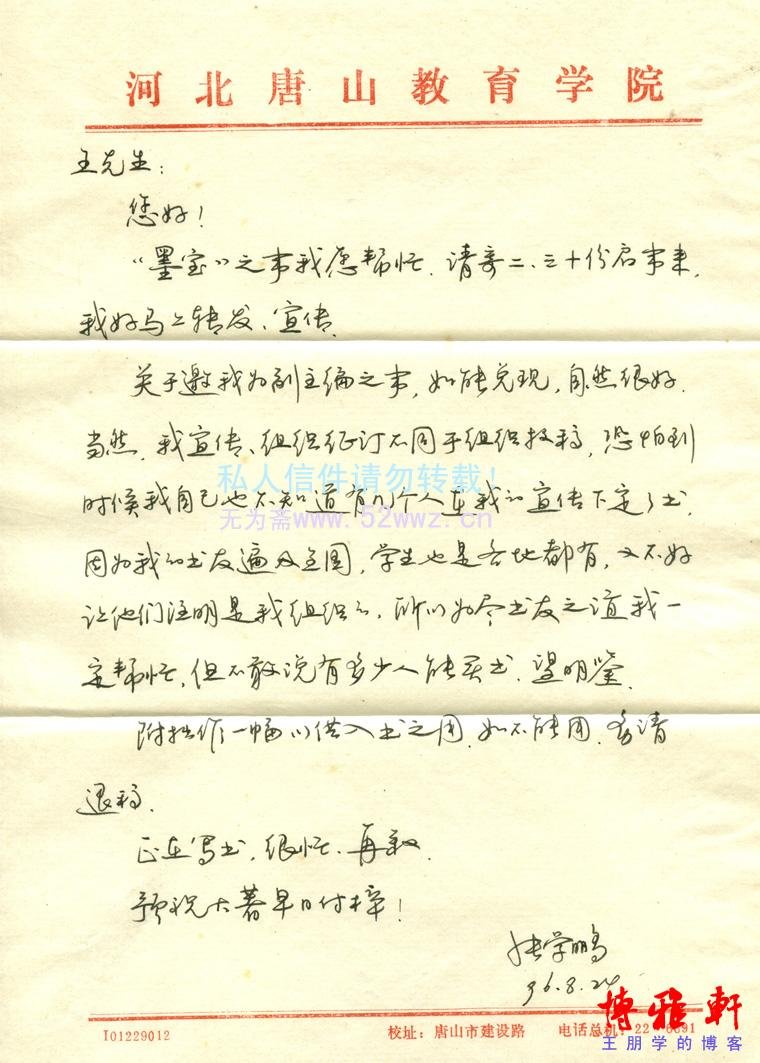 河北唐山教育学院
王先生：
您好！
“墨宝”之事我愿帮忙。请寄二、三十份启事来，
我好马上转发、宣传。
关于邀我为副主编之事，如能兑现，自然很好。
当然，我宣传、组织征订不同于组织投稿，恐怕到
私人信件请勿转载！
时候我自己也不知道有几个人在我的宣传下定了书，
无为斋www.52wwz.cn
因为我的书友遍及全国，学生也是各地都有，又不好
让他们注明是我组织的，所以为尽书友之谊我一
定帮忙，但不敢说有多少人能买书，望明鉴。
附拙作一幅以供入书之用，如不能用，务请
退稿。
正在写书，很忙、再叙。
预祝大著早日付梓！
张学鹏
96.8.24
博雅轩
王朋学的博客
I01229012
校址：唐山市建设路
电话总机：22